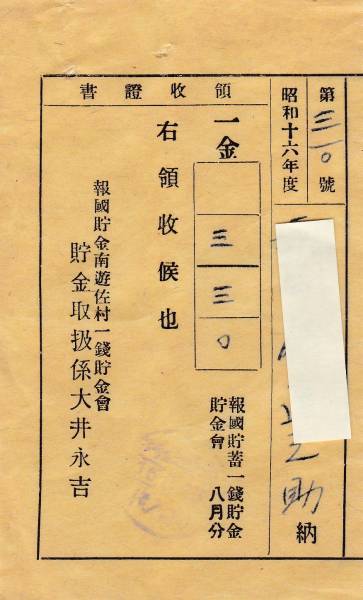 第三一〇號
昭和十六年度
之助 納
領收證書
一金 三三〇
報國貯蓄一錢貯金
貯金會 八月分
右領收候也
報國貯金南遊佐村一錢貯金會
貯金取扱係大井永吉